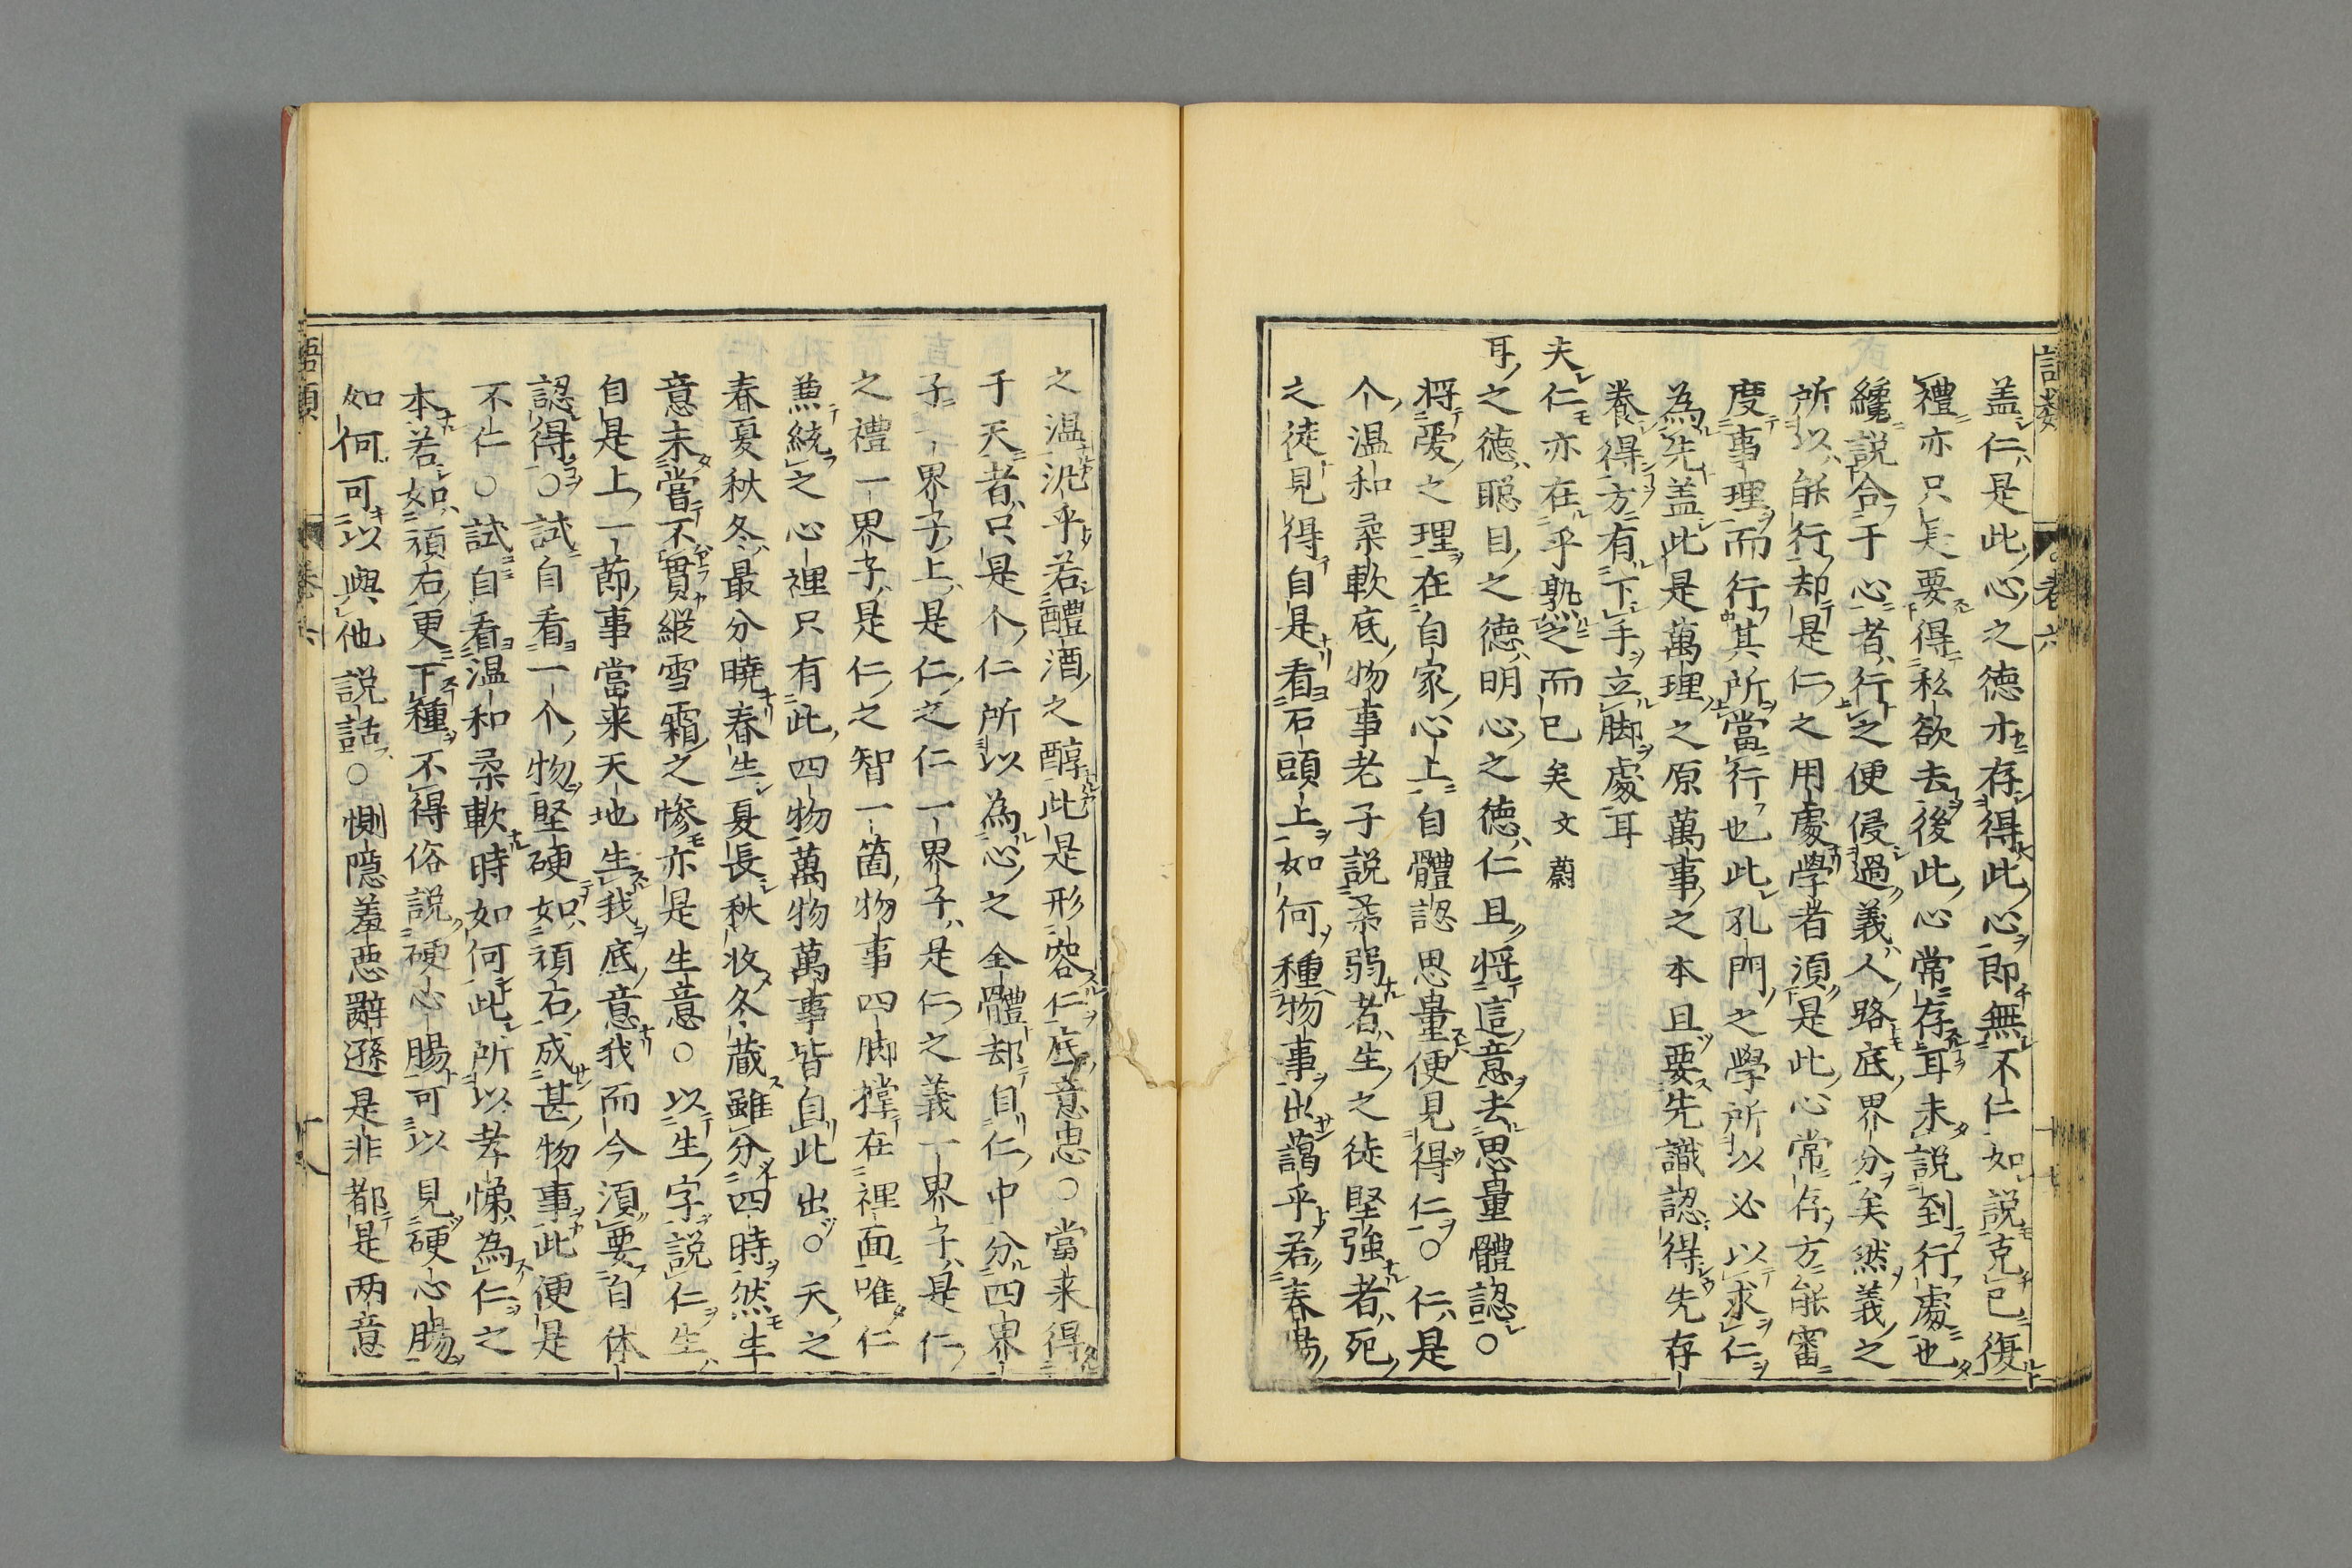 盖仁是此心之德才存得此心即無不仁如說克己復
禮亦只是要得私欲去後此心常存耳未說到行處也
纔說合于心者行之便侵過義人路底界分矣然義之
所以能行却是仁之用處學者須是此心常存方能審
度事理而行其所當行也此孔門之學所以必以求仁
為先盖此是萬理之原萬事之本且要先識認得先存
養得方有下手立脚處耳
夫仁亦在乎熟之而已矣 文蔚
耳之德聰目之德明心之德仁且將這意去思量體認○
将愛之理在自家心上自體認思量便見得仁○仁是
个温和柔軟底物事老子說柔弱者生之徒堅強者死
之徒見得自是看石頭上如何種物事出藹乎若春陽
之温汎乎若醴酒之醇此是形容仁底意忠○當来得
于天者只是个仁所以為心之全體却自仁中分四界
子一界子上是仁之仁一界子是仁之義一界子是仁
之禮一界子是仁之智一箇物事四脚撑在裡面唯仁
兼統之心裡只有此四物萬物萬事皆自此出○天之
春夏秋冬最分曉春生夏長秋收冬蔵雖分四時然生
意未嘗不貫縦雪霜之惨亦是生意○以生字說仁生
自是上一節事當来天地生我底意我而今須要自体
認得○試自看一个物堅硬如頑石成甚物事此便是
不仁○試自看温和柔軟時如何此所以孝悌為仁之
本若如頑石更下種不得俗說硬心膓可以見硬心膓
如何可以與他説話○惻隠羞惡辭遜是非都是两意
語類
卷六